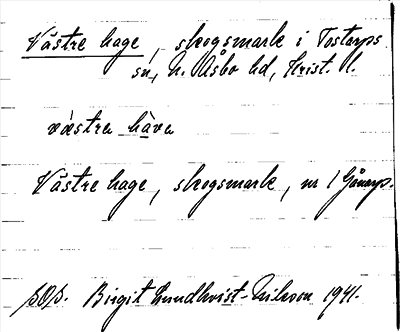 Västre hage, skogsmark i Tostarps
sn, N. Åsbo hd, Krist. l.
västra hava
Västre hage, skogsmark, nr 1 Gånarp.
SOS. Birgit Lundkvist-Nilsson 1941.